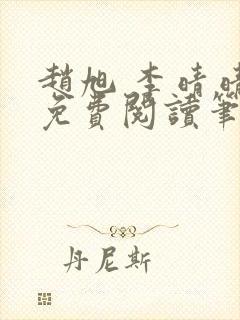 趙旭 李晴晴
免費閱讀筆
丹尼斯